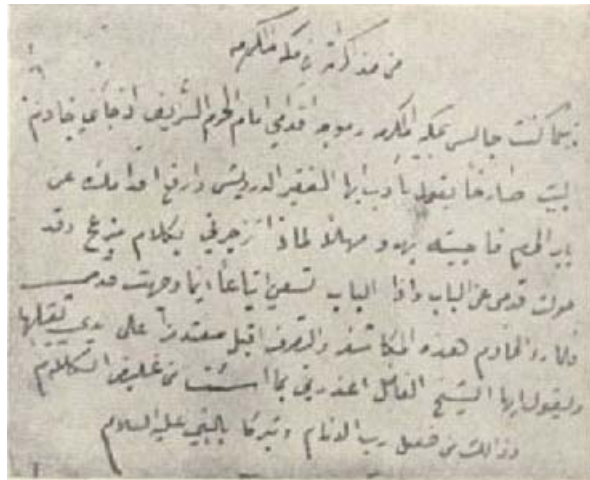 من مذكراته في مكة المكرمه
بينما كنت جالس بمكه المكرمه وموجه اقدامي امام الحرم الشريف اذ جاني خادم
البيت صارخاً يقول تأدب ايها الفقير الدرويش وارفع اقدامك عن
باب الحرم فاجبته بهدو مهلاً لماذا تزجرني بكلام مزعج وقد
حولت قدمي عن الباب واذا الباب تسعى اتباعاً اينما وجهت قدمي
فلما رد الخادم هذه المكاشفه والتصرف اقبل معتذراً على يدي يقبلها
ويقول ايها الشيخ الفاضل اعذرني بما اسئت من غليظ الكلام
وذالك من فضل رب الانام وتبركا بالنبي عليه السلام